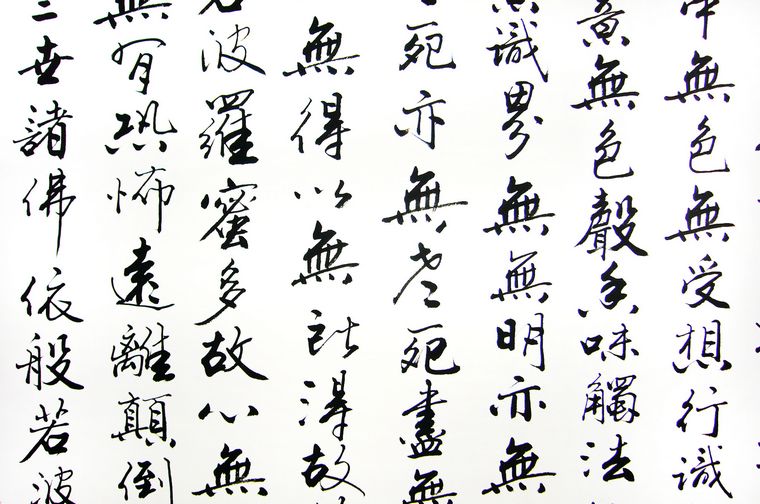 中無色無受想行識
意無色聲香味觸法
無識界無無明亦無
老死亦無老死盡無
無得以無所得故
若波羅蜜多故心無
無有恐怖遠離顛倒
三世諸佛依般若波